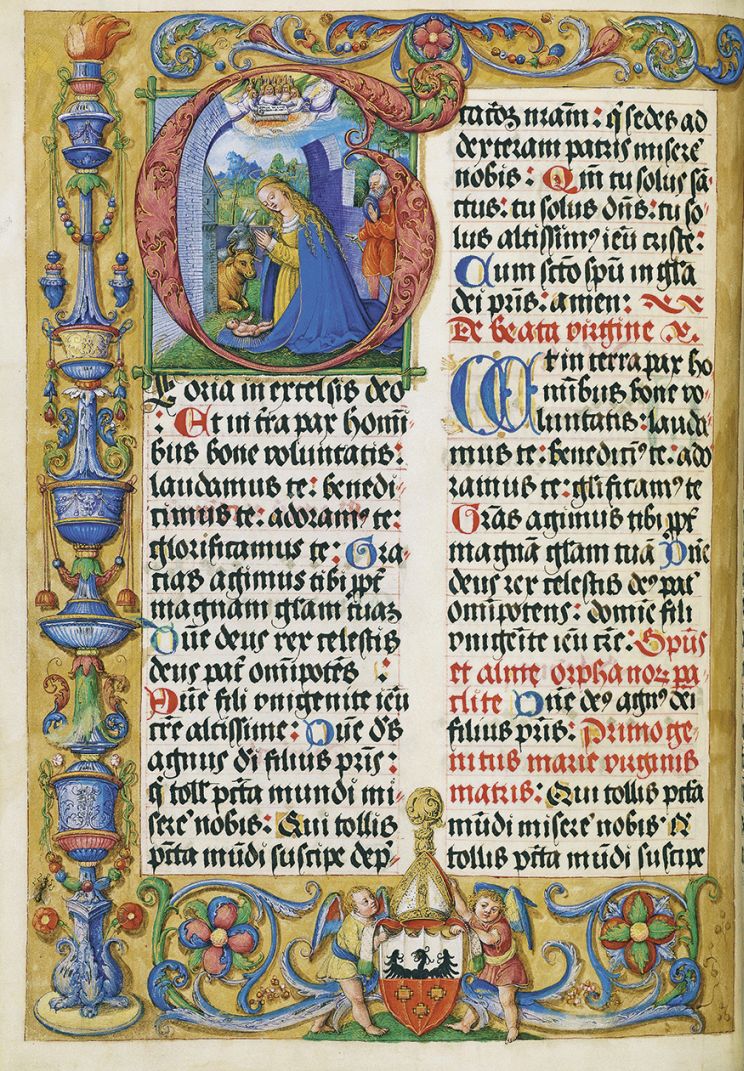 Gloria in excelsis deo
: Et in tr̃a pax homi᷑
bus bone voluntatis:
laudamus te: benedi⸗
cimus te: adoramꝰ te:
glorificamus te: Gra⸗
cias agimus tibi ꝓpt᷑
magnam gl̃am tuaꝫ
Dñe deus rex celestis
deus pat᷑ om̃ipotẽs :
Dñe fili vnigenite ieu᷑
xr̃e altissime: Dñe d᷑s
agnus di᷑ filius pr̃is:
q᷑ toll᷑ pct̃a mundi mi⸗
sere᷑ nobis: Qui tollis
pct̃a mũdi suscipe dep̃⸗
cat᷑oꝫ nr̃am: q᷑ sedes ad
dexteram patris misere᷑
nobis: Qm̃ tu solus sã⸗
ctus: tu solus dñs: tu so⸗
lus altissimꝰ ieu᷑ criste:
Cum sct̃o spũ in gl̃a
dei pr̃is: amen:
De beata virgine
Et in terra pax ho⸗
minibus bone vo⸗
luntatis: lauda⸗
mus te: benedicimꝰ te: ado⸗
ramus te: gl̃ificamꝰ te
Gr̃as agimus tibi ꝓpt᷑
magnã gl̃am tuã Dñe
deus rex celestis deꝰ pat᷑
om̃ipotens: domine fili
vnigenite ieu᷑ xr̃e: Spũs
et alme orphanoꝝ pa⸗
clite Dñe deꝰ agnꝰ dei
filius pr̃is: Primoge⸗
nitus marie virginis
matris: Qui tollis pct̃a
mũdi misere᷑ nobis Q᷑
tollis pct̃a mũdi suscipe